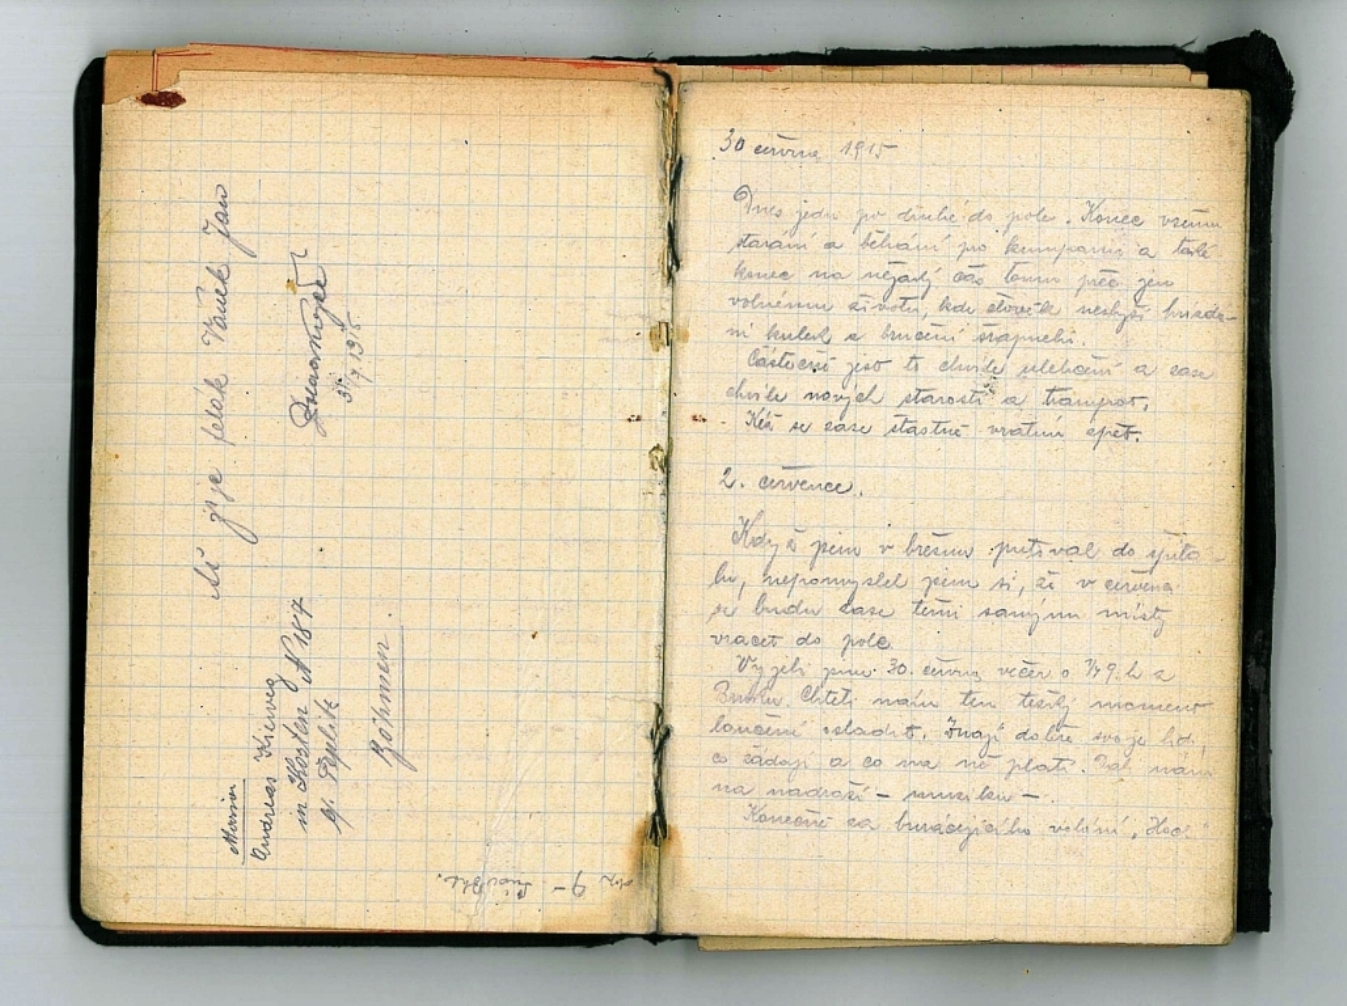 Ať žije feldk Vaněk Jan
31/7 1915
Andreas
in Kosten N 187
p. Teplitz
Böhmen.
30 června 1915
Dnes jedu po druhé do pole. Konec všemu
starání a běhání po kumpanii a také
konec na nějaký čas tomu přec jen
volnému životu, kde člověk neslyší hvízdá-
ní kulek a bručení šrapnelů.
Částečně jest to chvíle ulehčení a zase
chvíle nových starostí a trampot.
Kéž se zase šťastně vrátím zpět.
2. července.
Když jsem v březnu putoval do špitá-
lu, nepomyslel jsem si, že v červenci
se budu zase těmi samými místy
vracet do pole
Vyjeli jsme 30. června večer o 1/49. h z
Brucku. Chtěli nám ten těžký moment
loučení osladit. Znají dobře svoje lidi,
co žádají a co na ně platí. Dali nám
na nádraží – muziku –.
Konečně za burácejícího volání „Hoch"